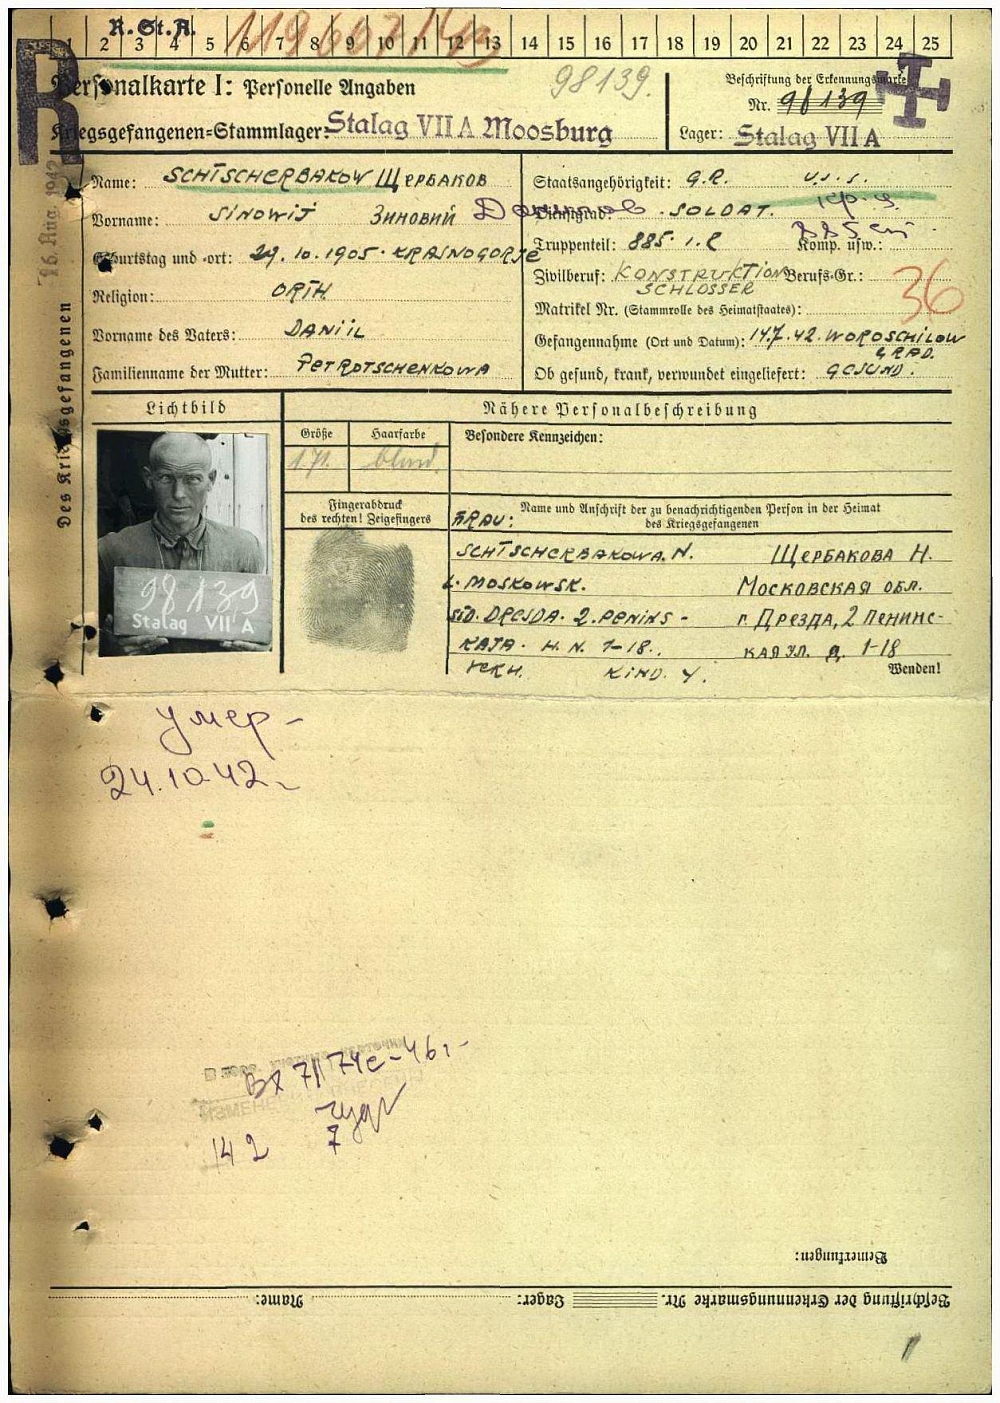 R.St.A.
1 2 3 4 5 6 7 8 9 10 11 12 13 14 15 16 17 18 19 20 21 22 23 24 25
R
Personalkarte I: Personelle Angaben
98139.
Kriegsgefangenen=Stammlager: Stalag VII A Moosburg
Beschriftung der Erkennungsmarke
Nr. 98139
Lager: Stalag VII A
Des Kriegsgefangenen
26. Aug. 1942
Name: SCHTSCHERBAKOW ЩЕРБАКОВ
Vorname: SINOWIJ ЗИНОВИЙ
Geburtstag und =ort: 29.10.1905. KRASNOGORJE
Religion: ORTH.
Vorname des Vaters: DANIIL
Familienname der Mutter: PETROTSCHENKOWA
Staatsangehörigkeit: G.R.
Dienstgrad: SOLDAT.
Truppenteil: 885. I.R Komp. usw.:
Zivilberuf: KONSTRUKTION Berufs=Gr.:
SCHLOSSER
36
Matrikel Nr. (Stammrolle des Heimatstaates):
Gefangennahme (Ort und Datum): 14.7.42. WOROSCHILOW
GRAD.
Ob gesund, krank, verwundet eingeliefert: GESUND.
Lichtbild
Nähere Personalbeschreibung
Größe Haarfarbe Besondere Kennzeichen:
171. blond.
98139
Stalag VII A
Fingerabdruck
des rechten! Zeigefingers
Name und Anschrift der zu benachrichtigenden Person in der Heimat
des Kriegsgefangenen
FRAU:
SCHTSCHERBAKOWA. N. ЩЕРБАКОВА Н.
MOSKOWSK. МОСКОВСКАЯ ОБЛ.
DRESDA. 2. г. ДРЕЗДА, 2 ЛЕНИНС-
KAJA. H. N. 1-18. КАЯ УЛ. Д. 1-18
KIND. Wenden!
умер -
24.10.42
142
7
Bemerkungen:
Beschriftung der Erkennungsmarke Nr. Lager: Name: